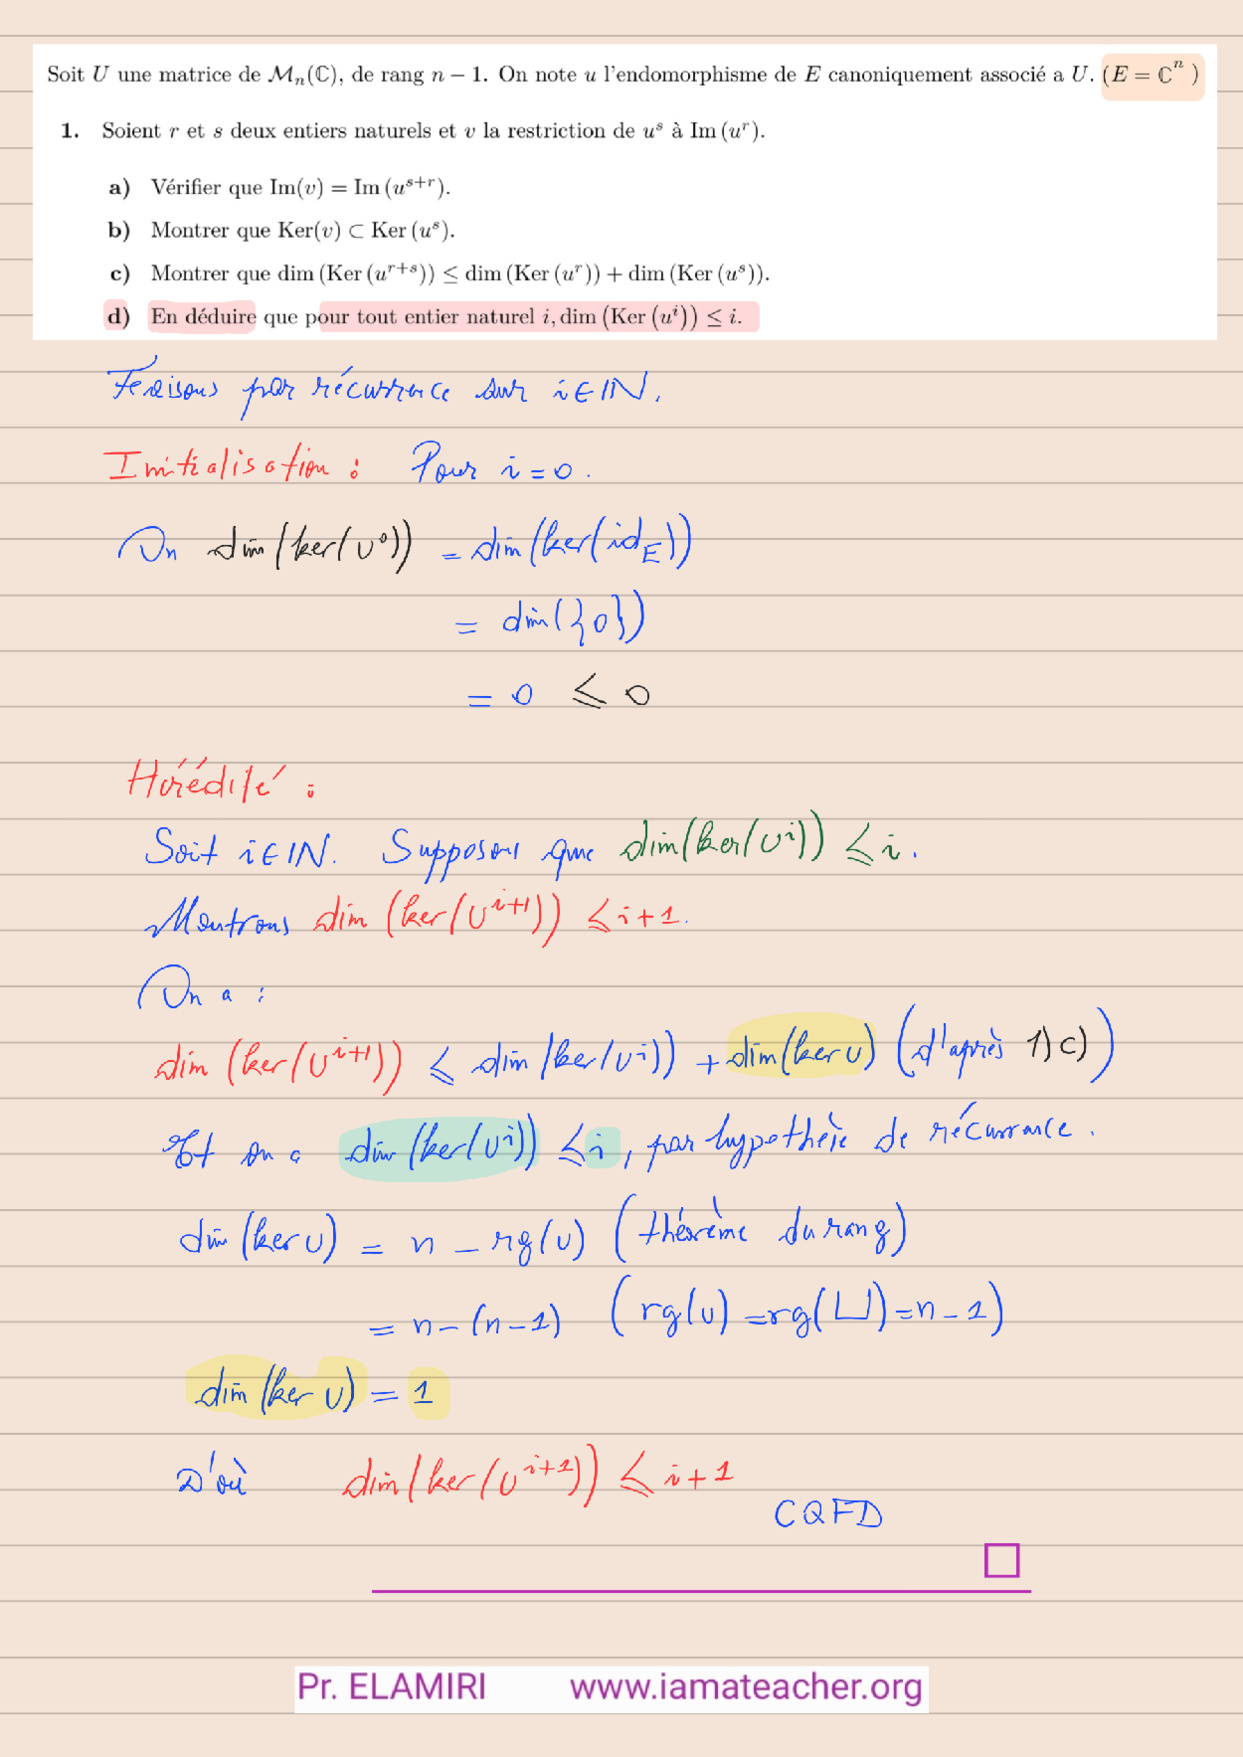 Soit U une matrice de Mₙ(ℂ), de rang n − 1. On note u l'endomorphisme de E canoniquement associé a U. (E = ℂⁿ )
1. Soient r et s deux entiers naturels et v la restriction de uˢ à Im (uʳ).
a) Vérifier que Im(v) = Im (uˢ⁺ʳ).
b) Montrer que Ker(v) ⊂ Ker (uˢ).
c) Montrer que dim (Ker (uʳ⁺ˢ)) ≤ dim (Ker (uʳ)) + dim (Ker (uˢ)).
d) En déduire que pour tout entier naturel i, dim (Ker (uⁱ)) ≤ i.
Faisons par récurrence sur i ∈ IN.
Initialisation : Pour i = 0.
On dim(ker(u⁰)) = dim(ker(id_E))
= dim({0})
= 0 ⩽ 0
Hérédité :
Soit i ∈ IN. Supposons que dim(ker(uⁱ)) ⩽ i.
Montrons dim (ker(uⁱ⁺¹)) ⩽ i+1.
On a :
dim (ker(uⁱ⁺¹)) ⩽ dim (ker(uⁱ)) + dim(ker u) (d'après 1)c))
Et on a dim (ker(uⁱ)) ⩽ i, par hypothèse de récurrence.
dim (ker u) = n − rg(u) (théorème du rang)
= n − (n−1) (rg(u) = rg(U) = n−1)
dim (ker u) = 1
D'où dim(ker(uⁱ⁺¹)) ⩽ i+1
CQFD
Pr. ELAMIRI www.iamateacher.org